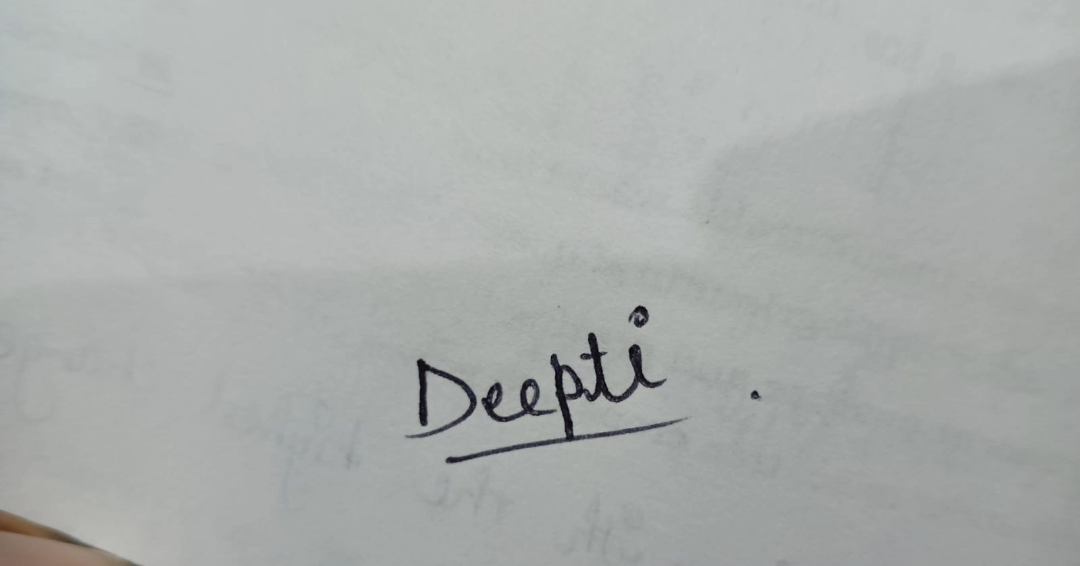 Deepti .